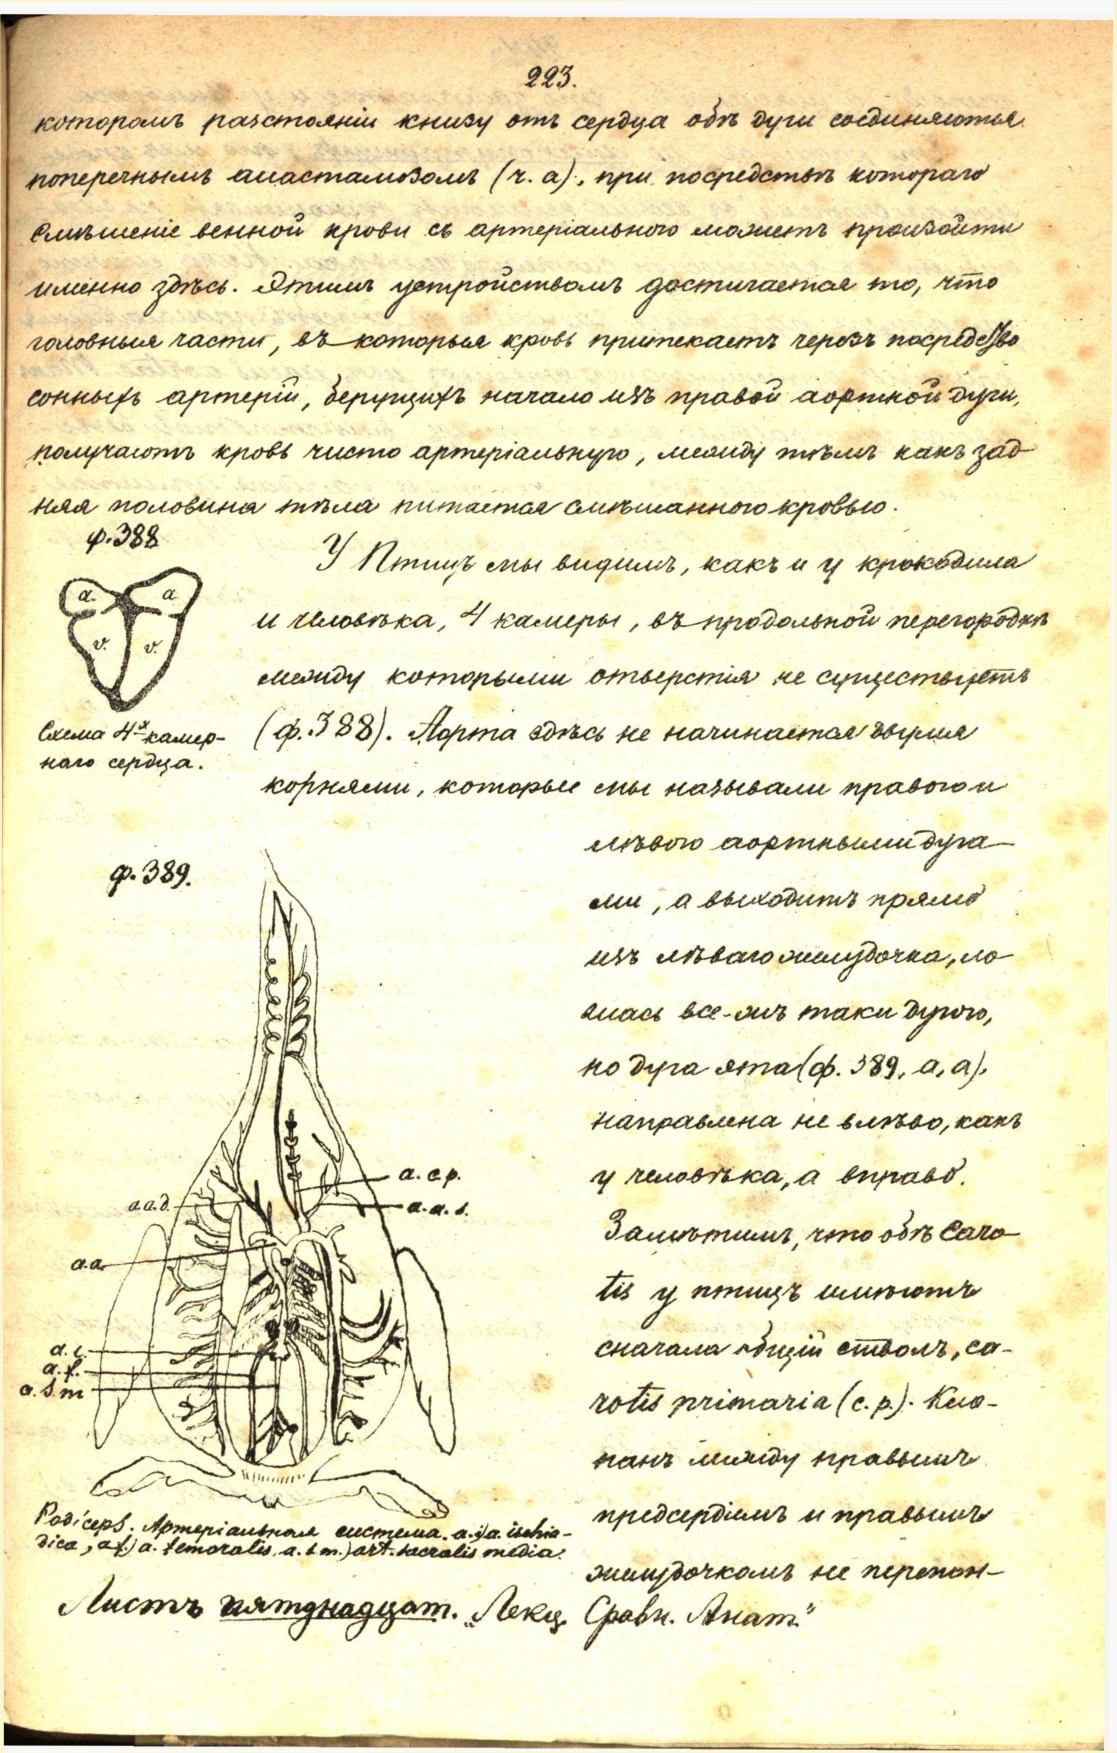 223.
которомъ разстояніи книзу отъ сердца обѣ дуги соединяются
поперечнымъ анастамозомъ (ч. а)., при посредствѣ котораго
смѣшеніе венной крови съ артеріальною можетъ произойти
именно здѣсь. Этимъ устройствомъ достигается то, что
головныя части, въ которыя кровь притекаетъ черезъ посредство
сонныхъ артерій, берущихъ начало изъ правой аортной дуги,
получаютъ кровь чисто артеріальную, между тѣмъ какъ зад-
няя половина тѣла питается смѣшанною кровью.
ф. 388
a. a
v. v.
Схема 4х камер-
наго сердца.
У Птицъ мы видимъ, какъ и у крокодила
и человѣка, 4 камеры, въ продольной перегородкѣ
между которыми отверстія не существуетъ
(ф. 388). Аорта здѣсь не начинается двумя
корнями, которые мы называли правою и
лѣвою аортными дуга-
ми, а выходитъ прямо
изъ лѣваго желудочка, ло-
маясь все-жъ таки дугою,
но дуга эта (ф. 389, а, а).
направлена не влѣво, какъ
у человѣка, а вправо.
Замѣтимъ, что обѣ Caro-
tis у птицъ имѣютъ
сначала общій стволъ, ca-
rotis primaria (c. p.). Кла-
панъ между правымъ
предсердіемъ и правымъ
желудочкомъ не перепон-
ф. 389.
a. c. p.
a. a. d.
a. a. s.
a. a
a. i.
a. f.
a. s. m
Podiceps. Артеріальная система. a. i) a. ischia-
dica, a f) a. femoralis, a. s m.) art. sacralis media.
Листъ пятнадцат. „Лекц. Сравн. Анат."